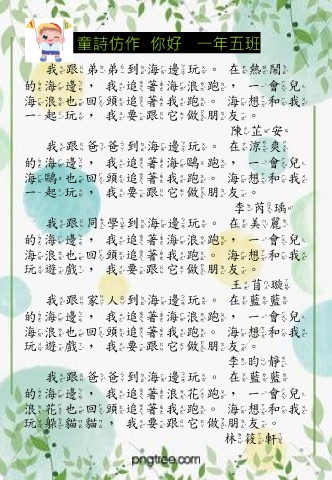 童詩仿作 你好 一年五班
我跟弟弟到海邊玩。在熱鬧
的海邊，我追著海浪跑，一會兒
海浪也回頭追著我跑。海想和我
一起玩，我要跟它做朋友。
陳芷安
我跟爸爸到海邊玩。在涼爽
的海邊，我追著海鷗跑，一會兒
海鷗也回頭追著我跑。海想和我
一起玩，我要跟它做朋友。
李芮瑀
我跟同學到海邊玩。在美麗
的海邊，我追著海浪跑，一會兒
海浪也回頭追著我跑。海想和我
玩遊戲，我要跟它做朋友。
王苜璇
我跟家人到海邊玩。在藍藍
的海邊，我追著海浪跑，一會兒
海浪也回頭追著我跑。海想和我
玩遊戲，我要跟它做朋友。
李昀靜
我跟爸爸到海邊玩。在藍藍
的海邊，我追著浪花跑，一會兒
浪花也回頭追著我跑。海想和我
玩躲貓貓，我要跟它做朋友。
林筱軒
pngtree.com